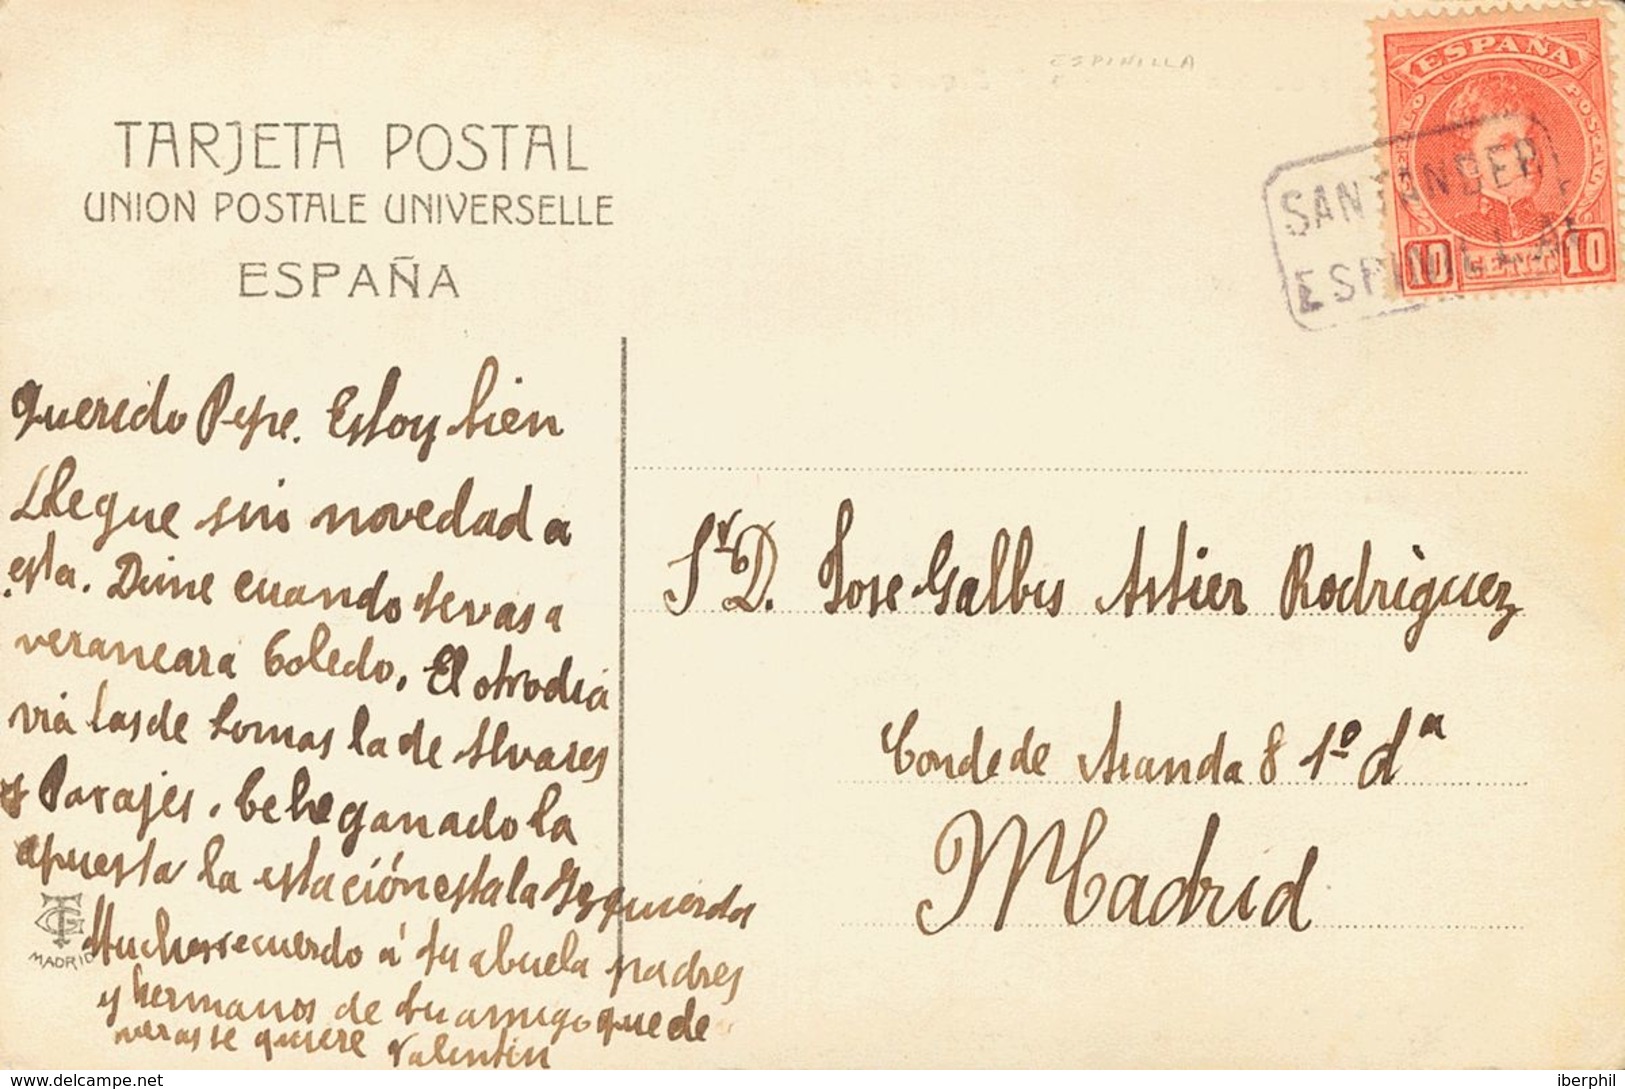 ESPINILLA
ESPAÑA
CORREO POSTAL
10 CENT. 10
SANTANDER
ESPINILLA
TARJETA POSTAL
UNION POSTALE UNIVERSELLE
ESPAÑA
Querido Pepe. Estoy bien
Llegue sin novedad a
esta. Dime cuando te vas a
veraneara Toledo. El otro dia
vi a las de Lomas la de Alvares
y Parajes. Te he ganado la
apuesta la estación esta la Izquierda
Muchos recuerdo á tu abuela padres
y hermanos de tu amigo que de
veras te quiere Valentin
Sr. D. Jose Galbis Astier Rodriguez
Conde de Aranda 8 1º dª
Madrid
MADRID
delcampe.net
iberphil